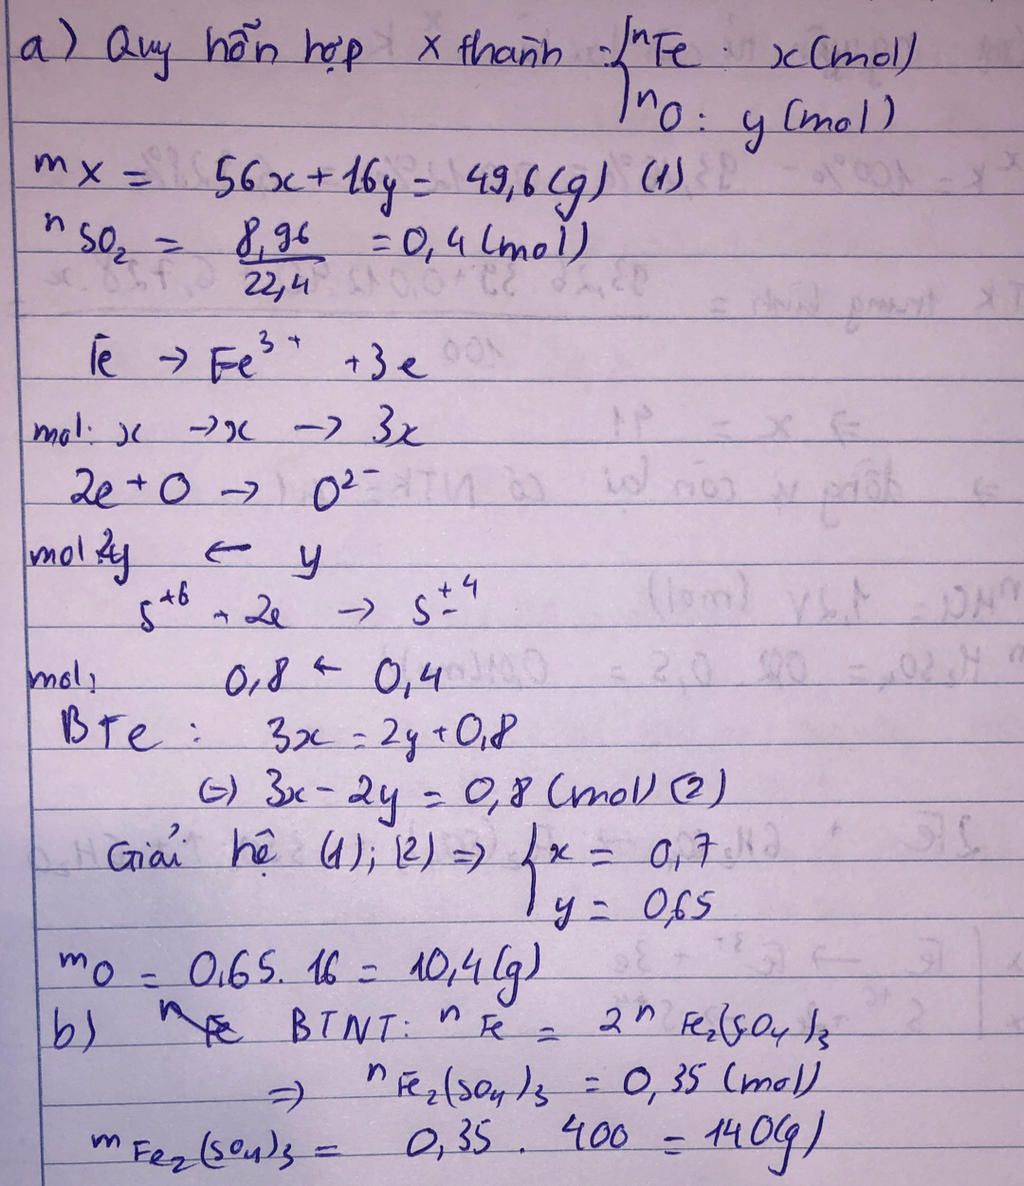 a) Quy hỗn hợp X thành: { nFe : x (mol)
nO : y (mol)
mX = 56x + 16y = 49,6 (g) (1)
nSO2 = 8,96 / 22,4 = 0,4 (mol)
Fe → Fe3+ + 3e
mol: x → x → 3x
2e + O → O2-
mol 2y ← y
S+6 + 2e → S+4
mol: 0,8 ← 0,4
BTe : 3x = 2y + 0,8
(=) 3x - 2y = 0,8 (mol) (2)
Giải hệ (1); (2) => { x = 0,7
y = 0,65
mO = 0,65. 16 = 10,4 (g)
b) nFe BTNT: nFe = 2nFe2(SO4)3
=> nFe2(SO4)3 = 0,35 (mol)
mFe2(SO4)3 = 0,35 . 400 = 140(g)